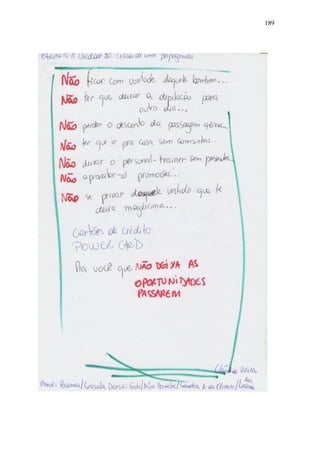 189
Não ficar com vontade daquele bombom...
Não ter que deixar a depilação para
outro dia...
Não perder o desconto da passagem aérea
Não ter que ir pra casa sem comprinhas
Não deixar o personal-trainer sem presente
Não aproveitar as promoções...
Não se privar daquele vestido que te
deixa magérrima...
Cartões de crédito
POWER CARD
Pra você que NÃO DEIXA AS
OPORTUNIDADES
PASSAREM